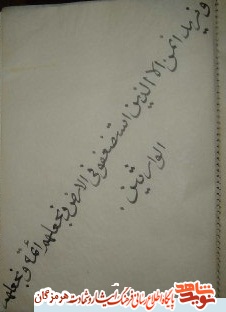 و نرید انمن الا الذین استضعفو فی الارض و نجعلهم ائمة و نجعلهم
الوارثین.
نوید شاهد
پایگاه اطلاع رسانی فرهنگ ایثار و شهادت هرمزگان